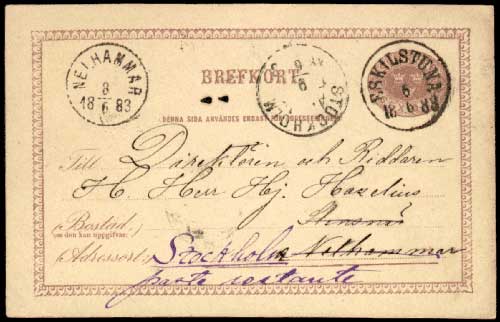 NELHAMMAR
8
18 6 83
BREFKORT
6
STOCKHOLM
ESKILSTUNA
6
18 6 83
DENNA SIDA ANVÄNDES ENDAST FÖR ADRESSERINGEN
Till Direktören och Riddaren
H. Herr Hj. Hazelius
Bostad:
(om den kan uppgifvas)
Adressort: Stockholm Nelhammar
poste restante